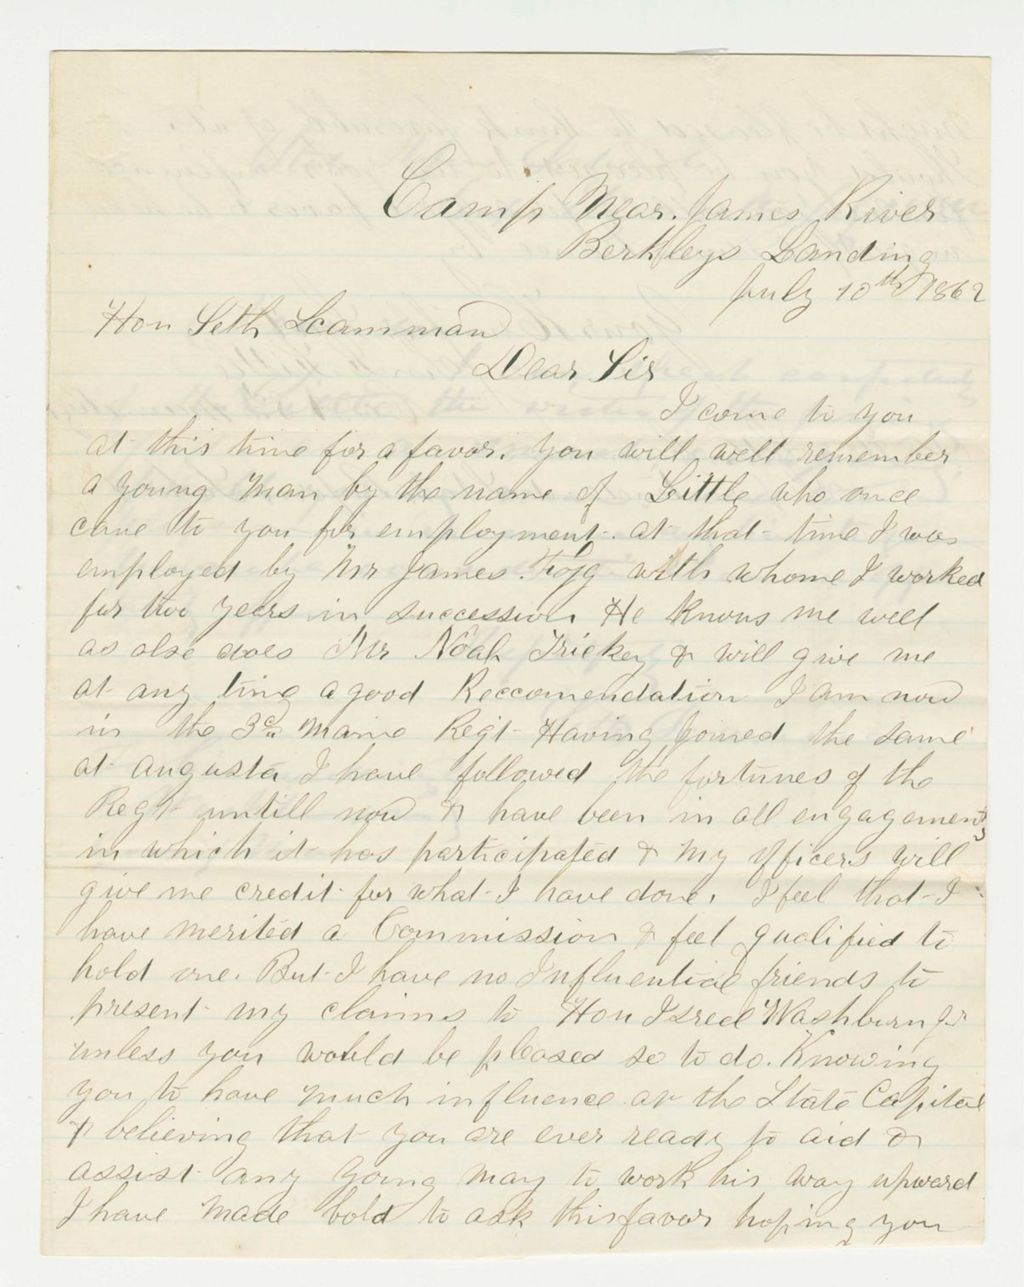 Camp Near James River
Berkleys Landing
July 10th 1862
Hon Seth Scamman
Dear Sir
I come to you
at this time for a favor. You will well remember
a young man by the name of Little who once
came to you for employment. at that time I was
employed by Mr James. Fogg with whome I worked
for two years in succession He knows me well
as also does Mr Noah Trickey & will give me
at any time a good Reccomendation I am now
in the 3d Maine Regt Having joined the same
at augusta I have followed the fortunes of the
Regt untill now & have been in all engagements
in which it has participated & my officers will
give me credit for what I have done. I feel that I
have merited a Commission & feel qualified to
hold one. But I have no Influential friends to
present my claims to Hon Isreel Washburn Jr
unless you would be pleased so to do. Knowing
you to have much influence at the State Capital
& believing that you are ever ready to aid &
assist any young may to work his way upward
I have made bold to ask this favor hoping you